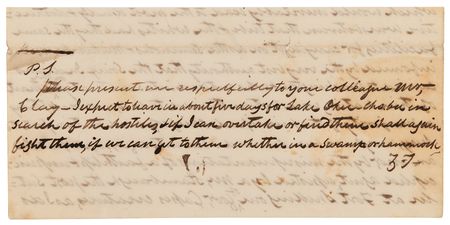 P.S.
Please present me respectfully to your colleague Mr
Clay – I expect to leave in about five days for Lake Oke-choba in
search of the hostiles, & if I can overtake or find them shall again
fight them, if we can get to them whether in a swamp or hammock
Z T